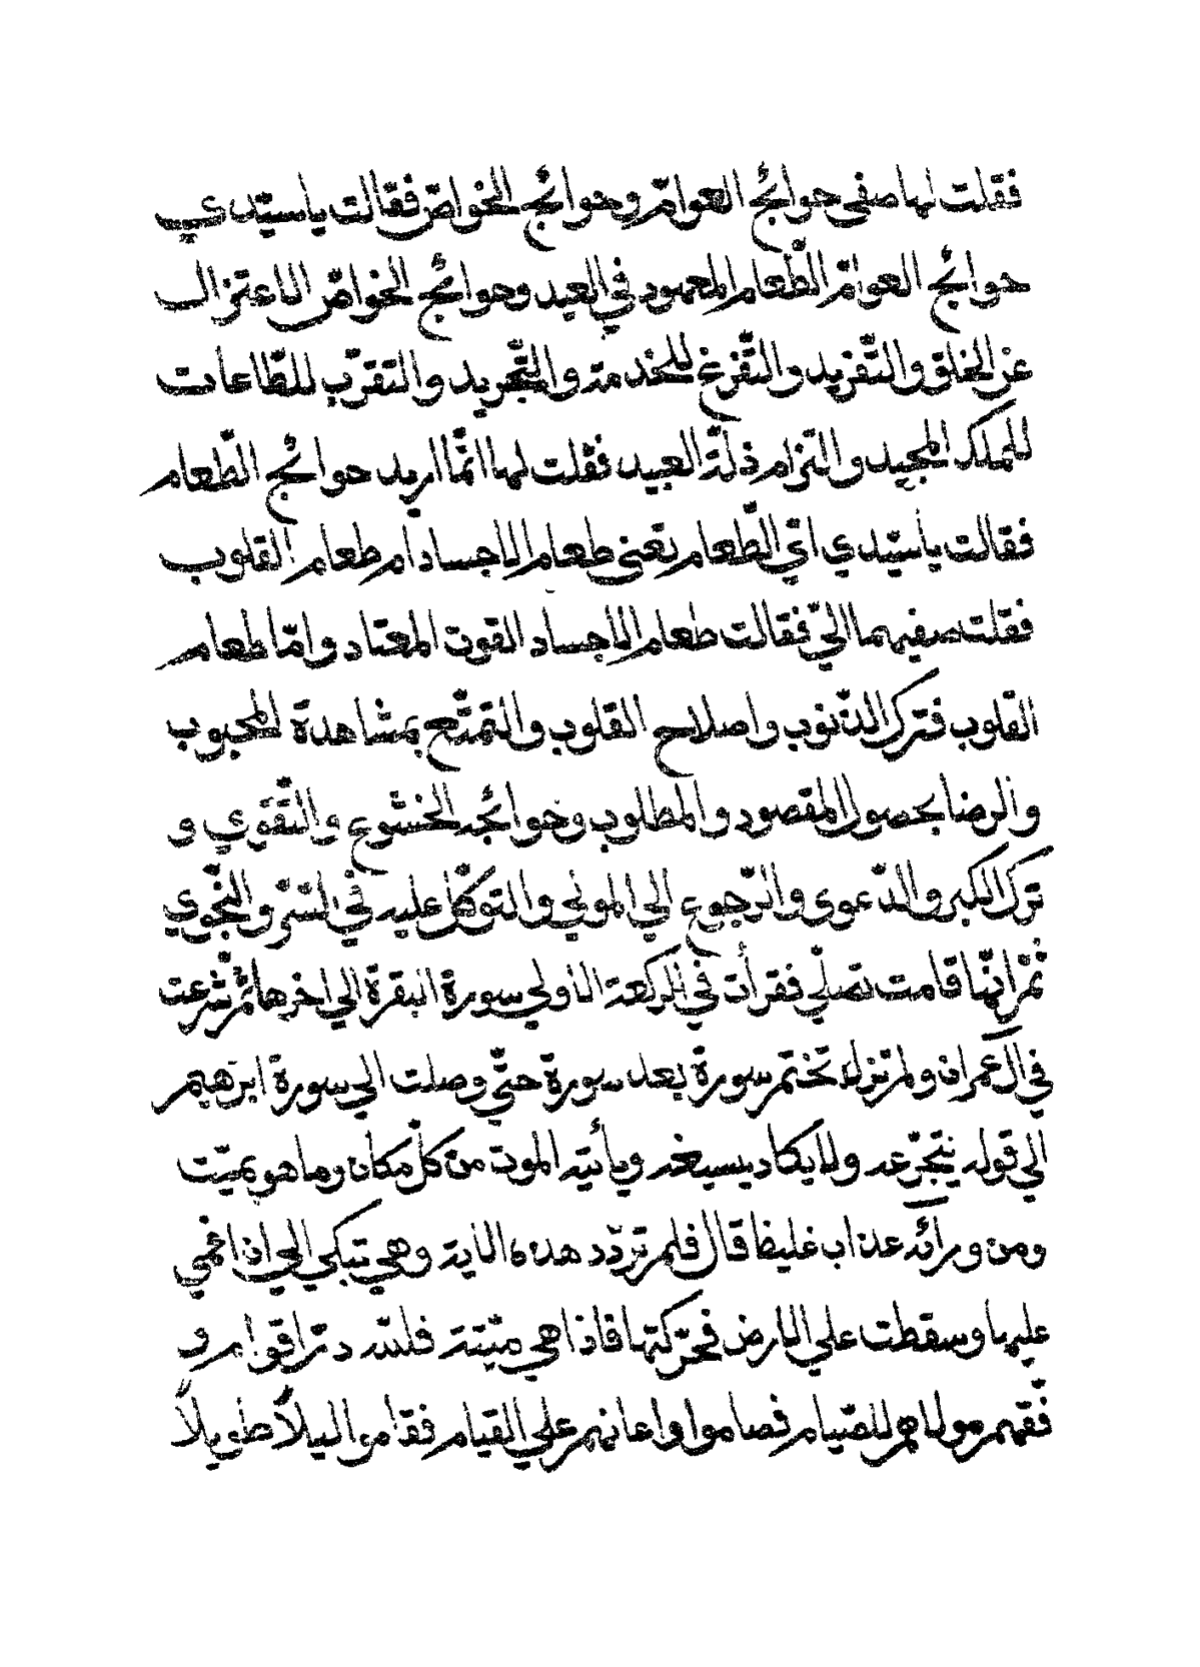 فقلت لها صفى حوائج العوامّ وحوائج الخواصّ فقالت يا سيّدي
حوائج العوامّ الطّعام المعهود في العيد وحوائج الخواصّ الاعتزال
عن الخلق والتّفريد والتّفرّغ للخدمة والتّجريد والتقرّب للطّاعات
للملك المجيد والتزام ذلّة العبيد فقلت لها انّما اريد حوائج الطّعام
فقالت يا سيّدي ايّ الطّعام تعنى طعام الاجساد ام طعام القلوب
فقلت صفيهما اليّ فقالت طعام الاجساد القوت المعتاد وامّا طعام
القلوب فترك الذّنوب واصلاح القلوب والتمتّع بمشاهدة المحبوب
والرضا بحصول المقصود والمطلوب وحوائجه الخشّوع والتّقوي و
ترك الكبر والدّعوى والرّجوع الي المولي والتوكّل عليه في السّرّ والنّجوي
ثمّ انّها قامت تصلّي فقرأت في الركعة الاولي سورة البقرة الي اخرها ثمّ شرعت
في آل عمران ولم تزل تختم سورة بعد سورة حتّي وصلت الي سورة ابرهيم
الي قوله يتجرّعه ولا يكاد يسيغه ويأتيه الموت من كلّ مكان وما هو بميّت
ومن ورآئه عذاب غليظ قال فلم تردّد هذه الاية وهي تبكي الي اذ اغمي
عليها وسقطت علي الارض فحرّكتها فاذا هي ميّتة فللّه درّ اقوام و
فّقهم مولاهم للصّيام فصاموا واعانهم علي القيام فقاموا ليلاً طويلاً